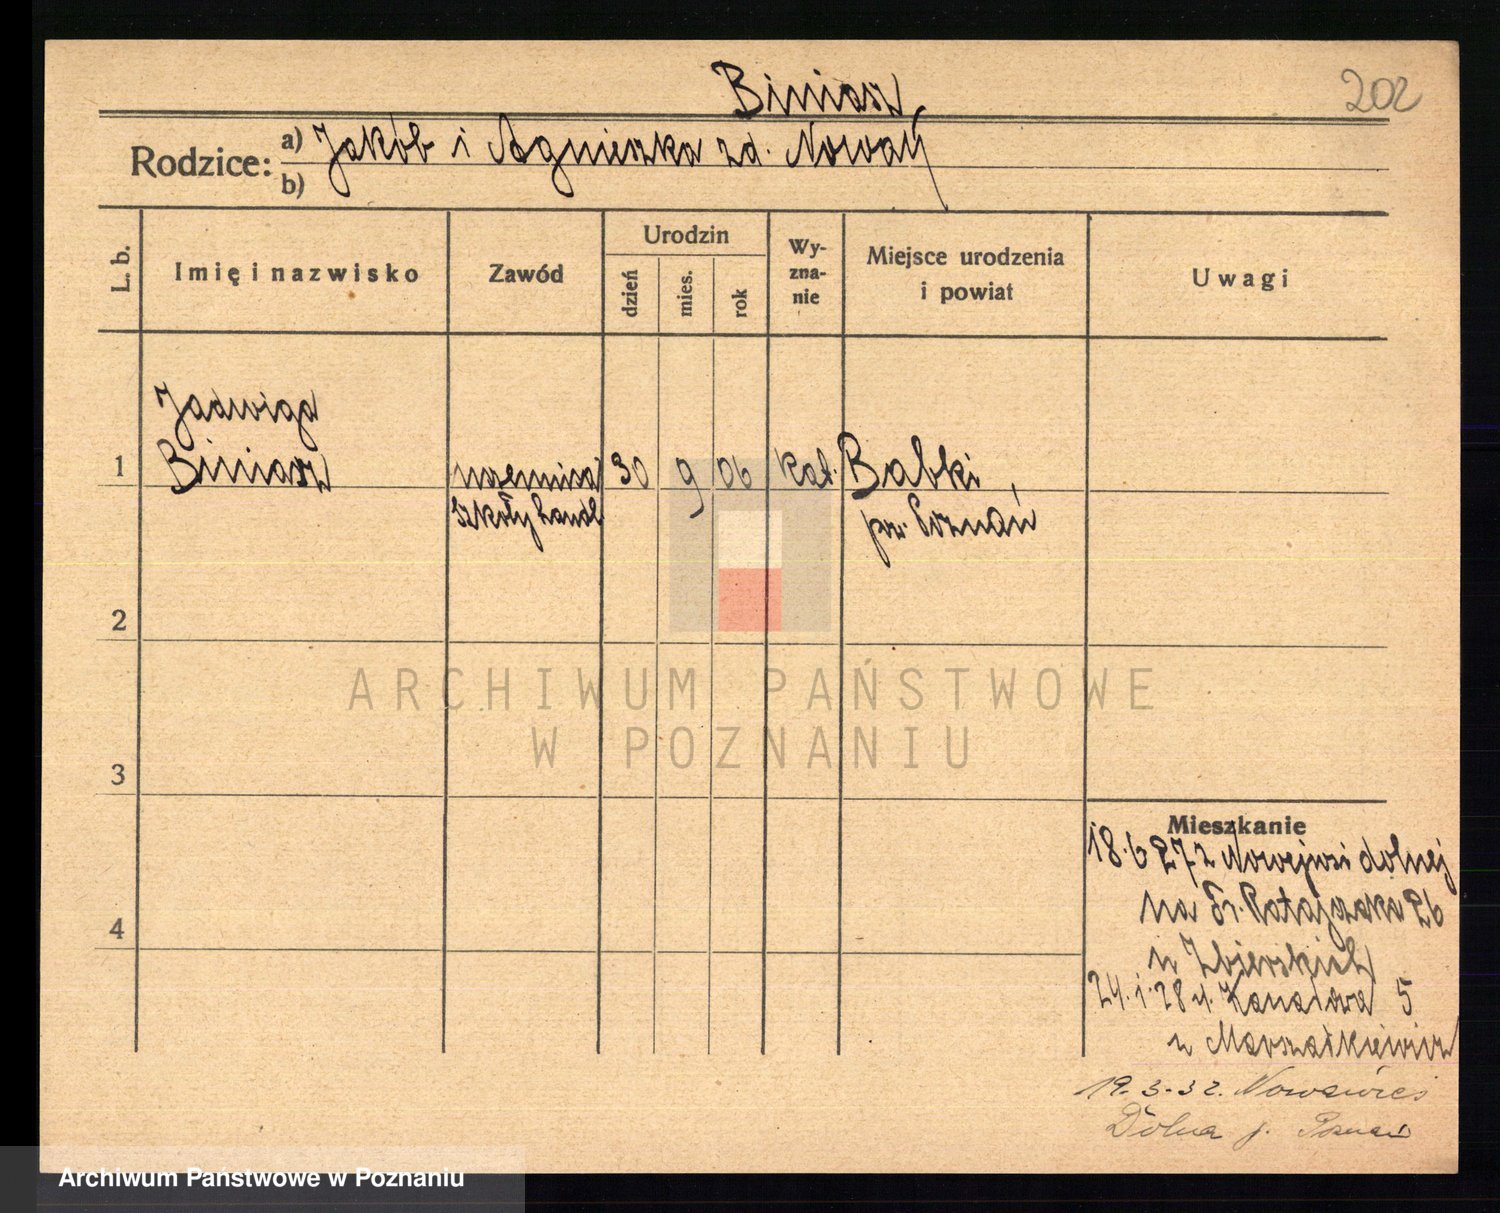 Biniasz
202
Rodzice: a) Jakób i Agnieszka zd. Nowak
b)
L. b.
Imię i nazwisko
Zawód
Urodzin
dzień
mies.
rok
Wy-
zna-
nie
Miejsce urodzenia
i powiat
Uwagi
Jadwiga
1 Biniasz uczennica 30 9 06 kat. Babki,
szkoły handl pow. Poznań
2
ARCHIWUM PAŃSTWOWE
W POZNANIU
3
Mieszkanie
18.6 27 z Nowejwsi dolnej
na Fr. Ratajczaka 26
u Zbierskich
4
24.1.28 ul. Kanałowa 5
u Marszałkiewicz
19.3-32. Nowawieś
Dolna p. Poznań
Archiwum Państwowe w Poznaniu